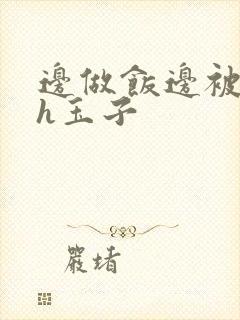 邊做飯邊被
h玉子
嚴堵